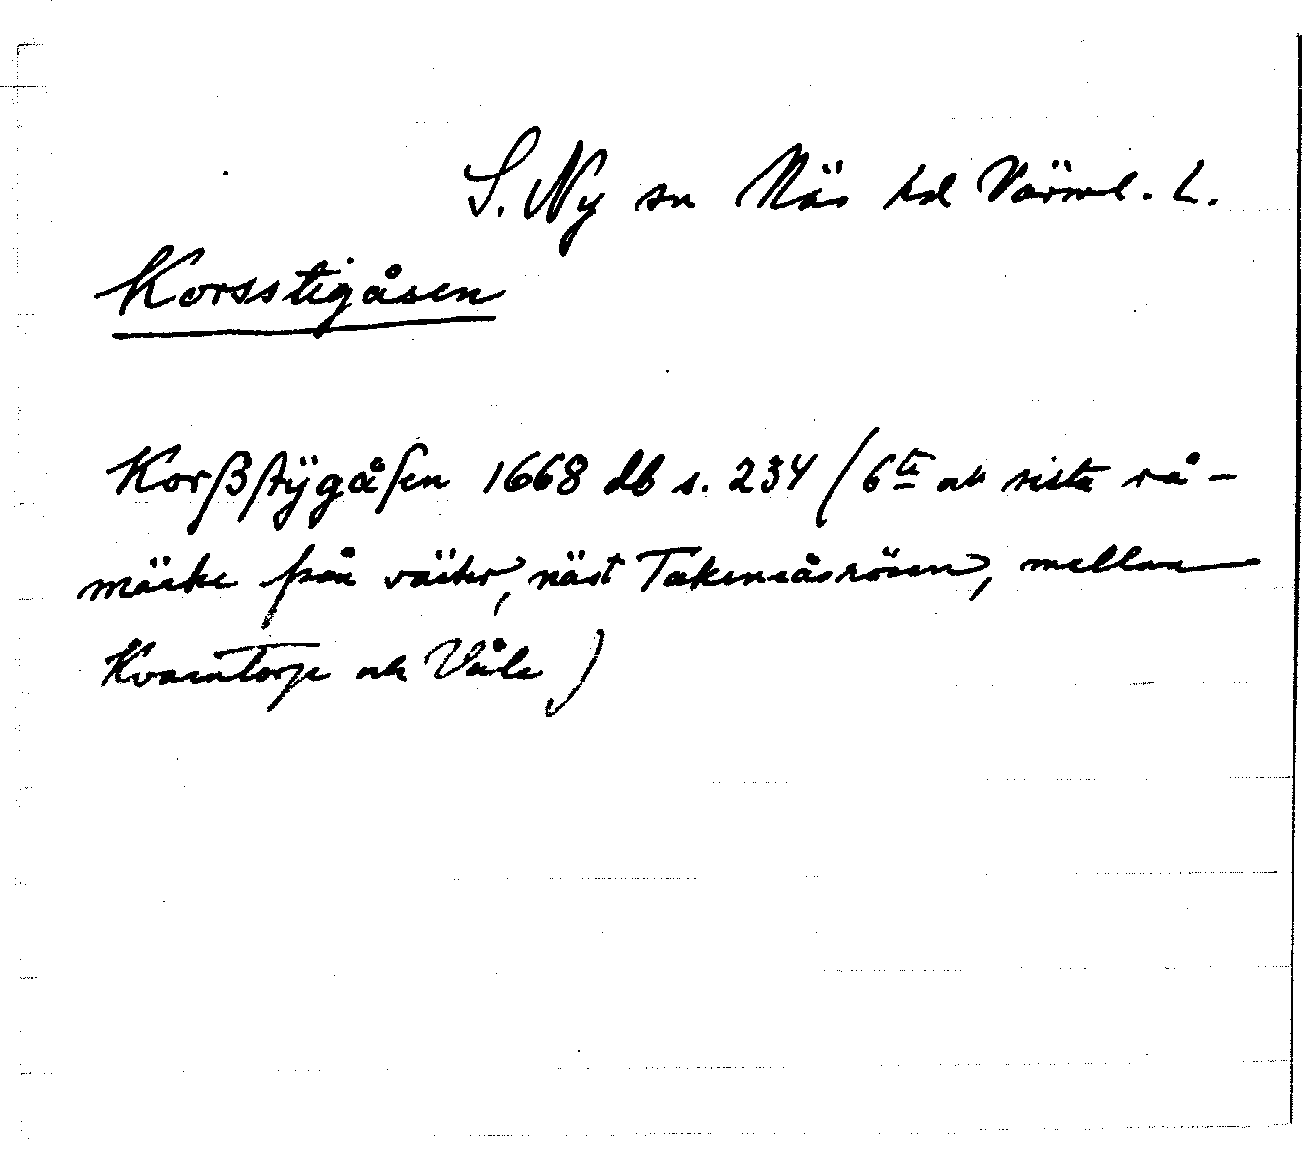 S. Ny sn Näs hd Värml. L.
Korsstigåsen
Korßstÿgåsen 1668 db s. 234 (6te och sista rå-
märke från väster, näst Takeneåsrösen, mellan
Kvarntorp och Våle)